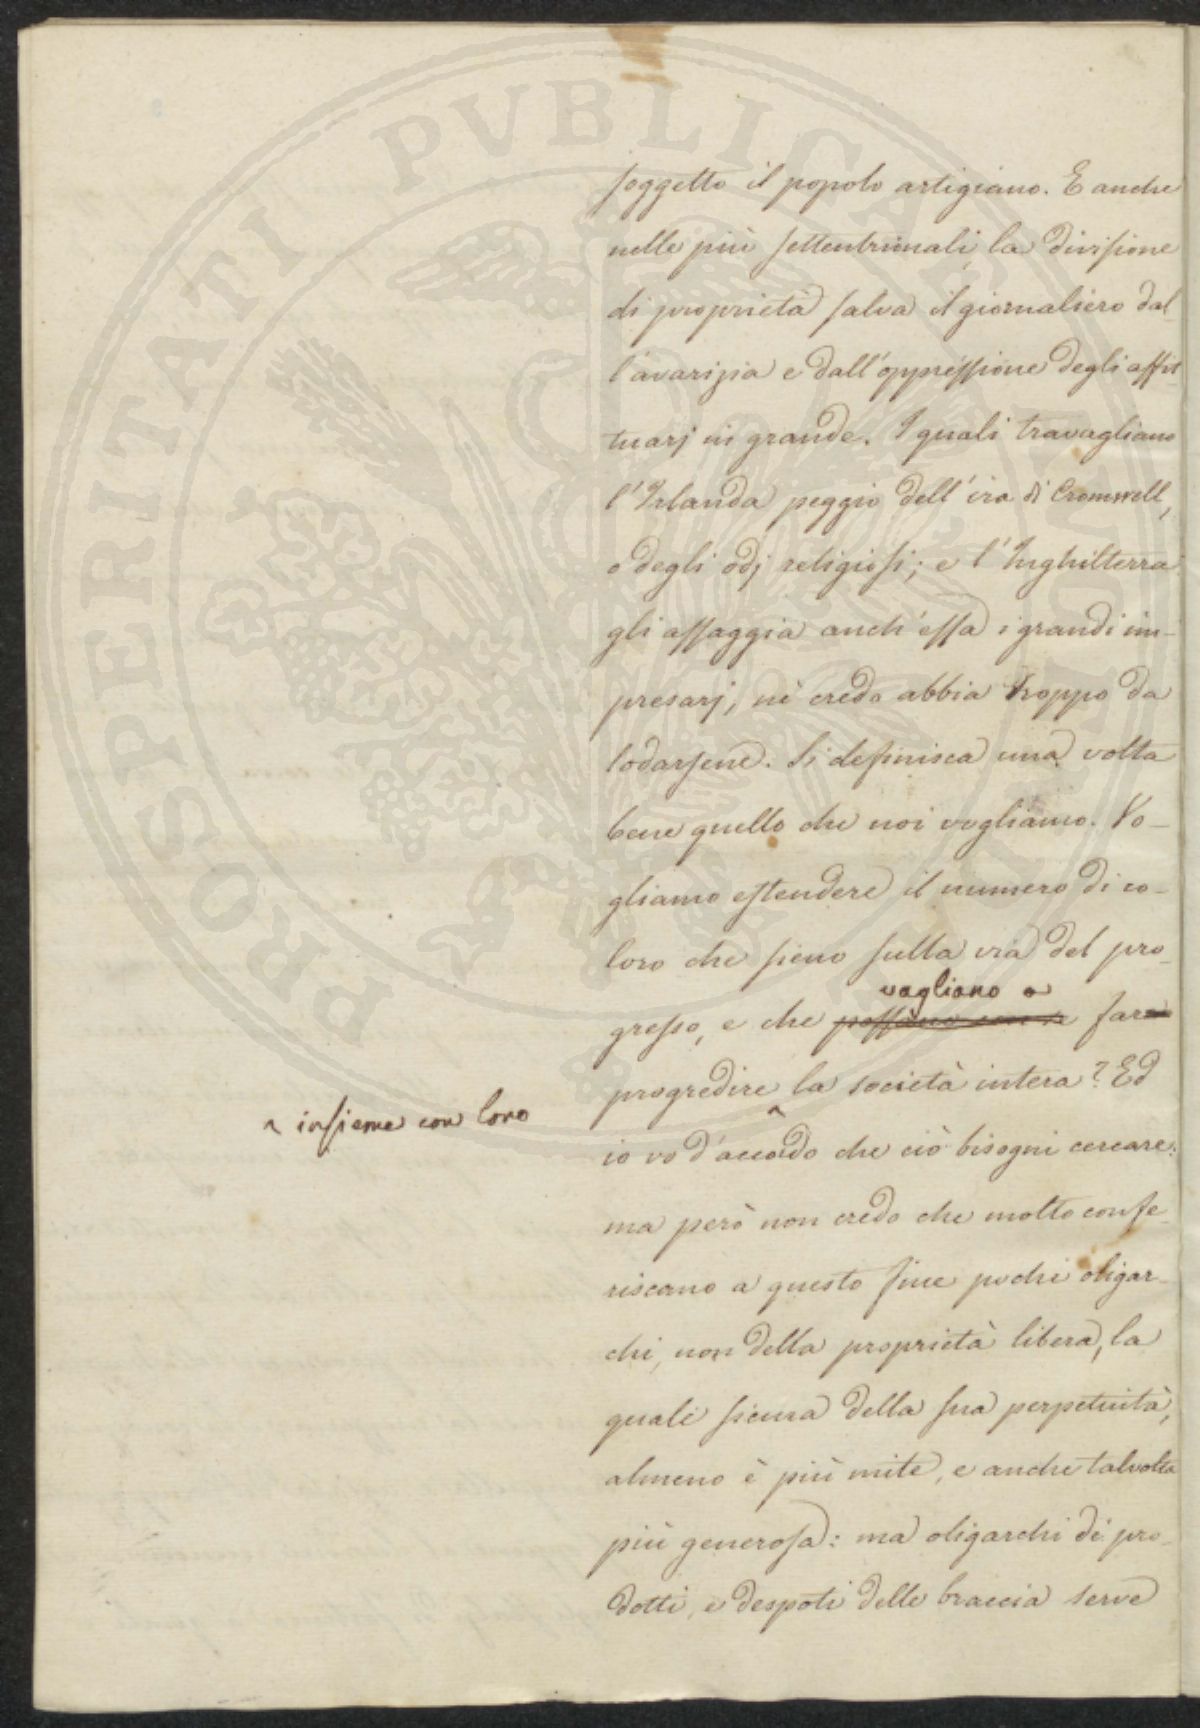 PROSPERITATI PVBLICAE
soggetto il popolo artigiano. E anche
nelle più settentrionali la divisione
di proprietà salva il giornaliero dal-
l'avarizia e dall'oppressione degli affit-
tuarj in grande. I quali travagliano
l'Irlanda peggio dell'ira di Cromwell,
o degli odj religiosi; e l'Inghilterra
gli assaggia anch'essa i grandi im-
presarj, nè credo abbia troppo da
lodarsene. Si definisca una volta
bene quello che noi vogliamo. Vo-
gliamo estendere il numero di co-
loro che sieno sulla via del pro-
vagliano a
gresso, e che possano con se fare
progredire la società intera? Ed
^ insieme con loro
io vo d'accordo che ciò bisogni cercare:
ma però non credo che molto confe-
riscano a questo fine pochi oligar-
chi, non della proprietà libera, la
quale sicura della sua perpetuità,
almeno è più mite, e anche talvolta
più generosa: ma oligarchi di pro-
dotti, e despoti delle braccia serve